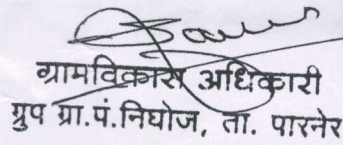 ग्रामविकास अधिकारी
ग्रुप ग्रा.पं.निघोज, ता. पारनेर